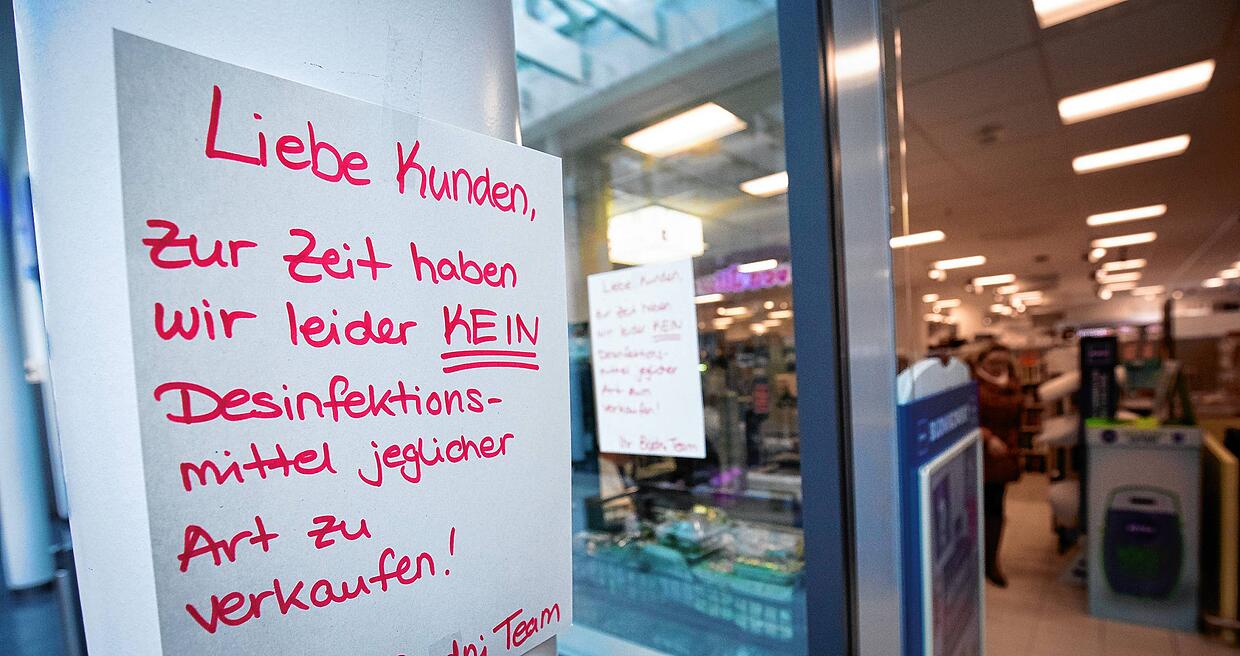 Liebe Kunden,
zur Zeit haben
wir leider KEIN
Desinfektions-
mittel jeglicher
Art zu
verkaufen!
Team
Liebe Kunden,
zur Zeit haben
wir leider KEIN
Desinfektions-
mittel jeglicher
Art zum
verkaufen!
Ihr Team